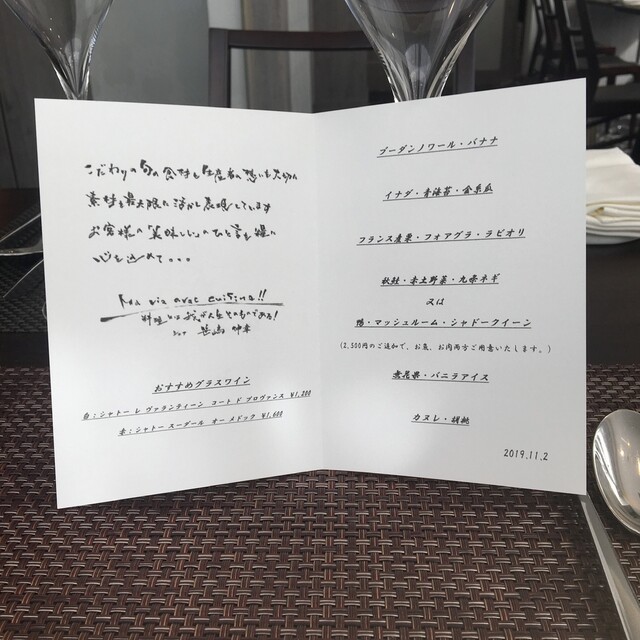 こだわりの旬の食材と生産者の想いを大切に
素材を最大限に活かし表現しています
お客様の「美味しい」のひと言を糧に
心を込めて...
avec cuisine!!
料理とは
おすすめグラスワイン
白:シャトー レ ヴァランティーン コート ド プロヴァンス ¥1,200
赤:シャトー スーダール オー メドック ¥1,600
ブーダンノワール・バナナ
イナダ・青海苔・金糸瓜
フランス産栗・フォアグラ・ラビオリ
秋鮭・赤土野菜・九条ネギ
又は
鴨・マッシュルーム・シャドークイーン
(2,500円のご追加で、お魚、お肉両方ご用意いたします。)
黄昆県・バニラアイス
カヌレ・胡桃
2019.11.2